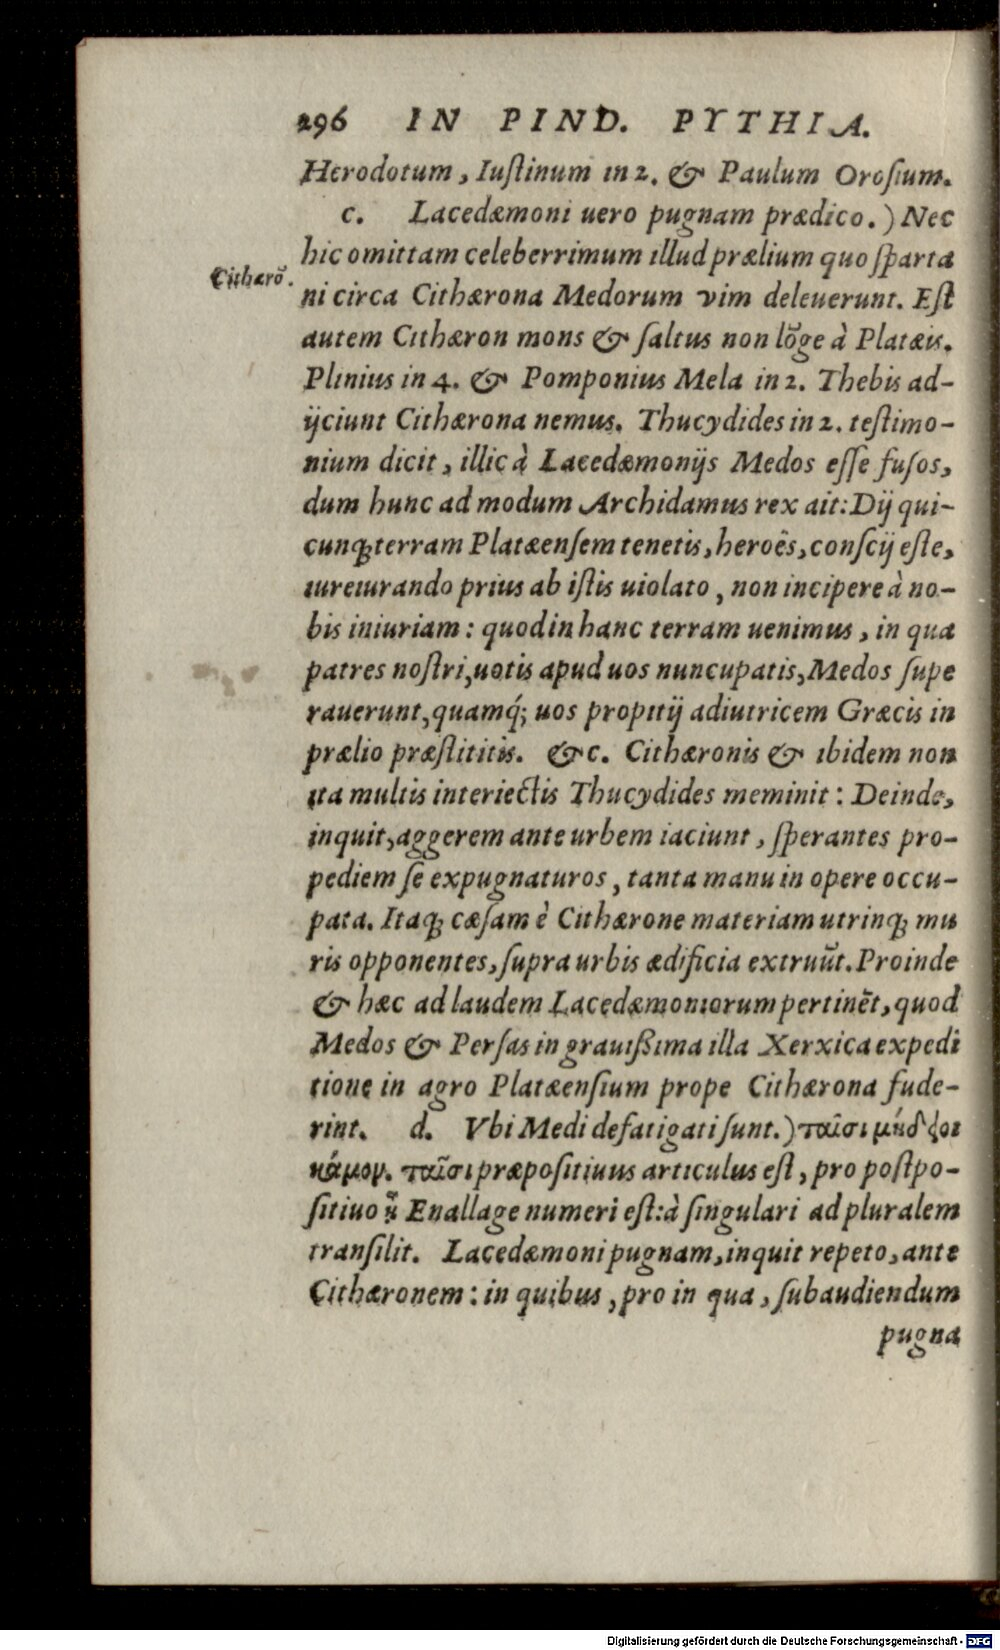 296 IN PIND. PYTHIA.
Herodotum, Iuſtinum in 2. & Paulum Oroſium.
c. Lacedæmoni uero pugnam prædico.) Nec
hic omittam celeberrimum illud prælium quo ſparta
Cithærō.
ni circa Cithærona Medorum vim deleuerunt. Eſt
autem Cithæron mons & ſaltus non lōge à Platæis.
Plinius in 4. & Pomponius Mela in 2. Thebis ad-
ijciunt Cithærona nemus. Thucydides in 2. teſtimo-
nium dicit, illic à Lacedæmonijs Medos eſſe fuſos,
dum hunc ad modum Archidamus rex ait: Dij qui-
cunq; terram Platæenſem tenetis, heroës, conſcij eſte,
iureiurando prius ab iſtis uiolato, non incipere à no-
bis iniuriam: quod in hanc terram uenimus, in qua
patres noſtri, uotis apud uos nuncupatis, Medos ſupe
rauerunt, quamq́; uos propitij adiutricem Græcis in
prælio præſtititis. &c. Cithæronis & ibidem non
ita multis interiectis Thucydides meminit: Deinde,
inquit, aggerem ante urbem iaciunt, ſperantes pro-
pediem ſe expugnaturos, tanta manu in opere occu-
pata. Itaq; cæſam è Cithærone materiam utrinq; mu
ris opponentes, ſupra urbis ædificia extruūt. Proinde
& hæc ad laudem Lacedæmoniorum pertinēt, quod
Medos & Perſas in grauißima illa Xerxica expedi
tione in agro Platæenſium prope Cithærona fude-
rint. d. Vbi Medi defatigati ſunt.) ταῖσι μήδ<span></span>ξοι
κάμον. ταῖσι præpoſitiuus articulus eſt, pro poſtpo-
ſitiuo Enallage numeri eſt: à ſingulari ad pluralem
tranſilit. Lacedæmoni pugnam, inquit repeto, ante
Cithæronem: in quibus, pro in qua, ſubaudiendum
pugna
Digitalisierung gefördert durch die Deutsche Forschungsgemeinschaft - DFG